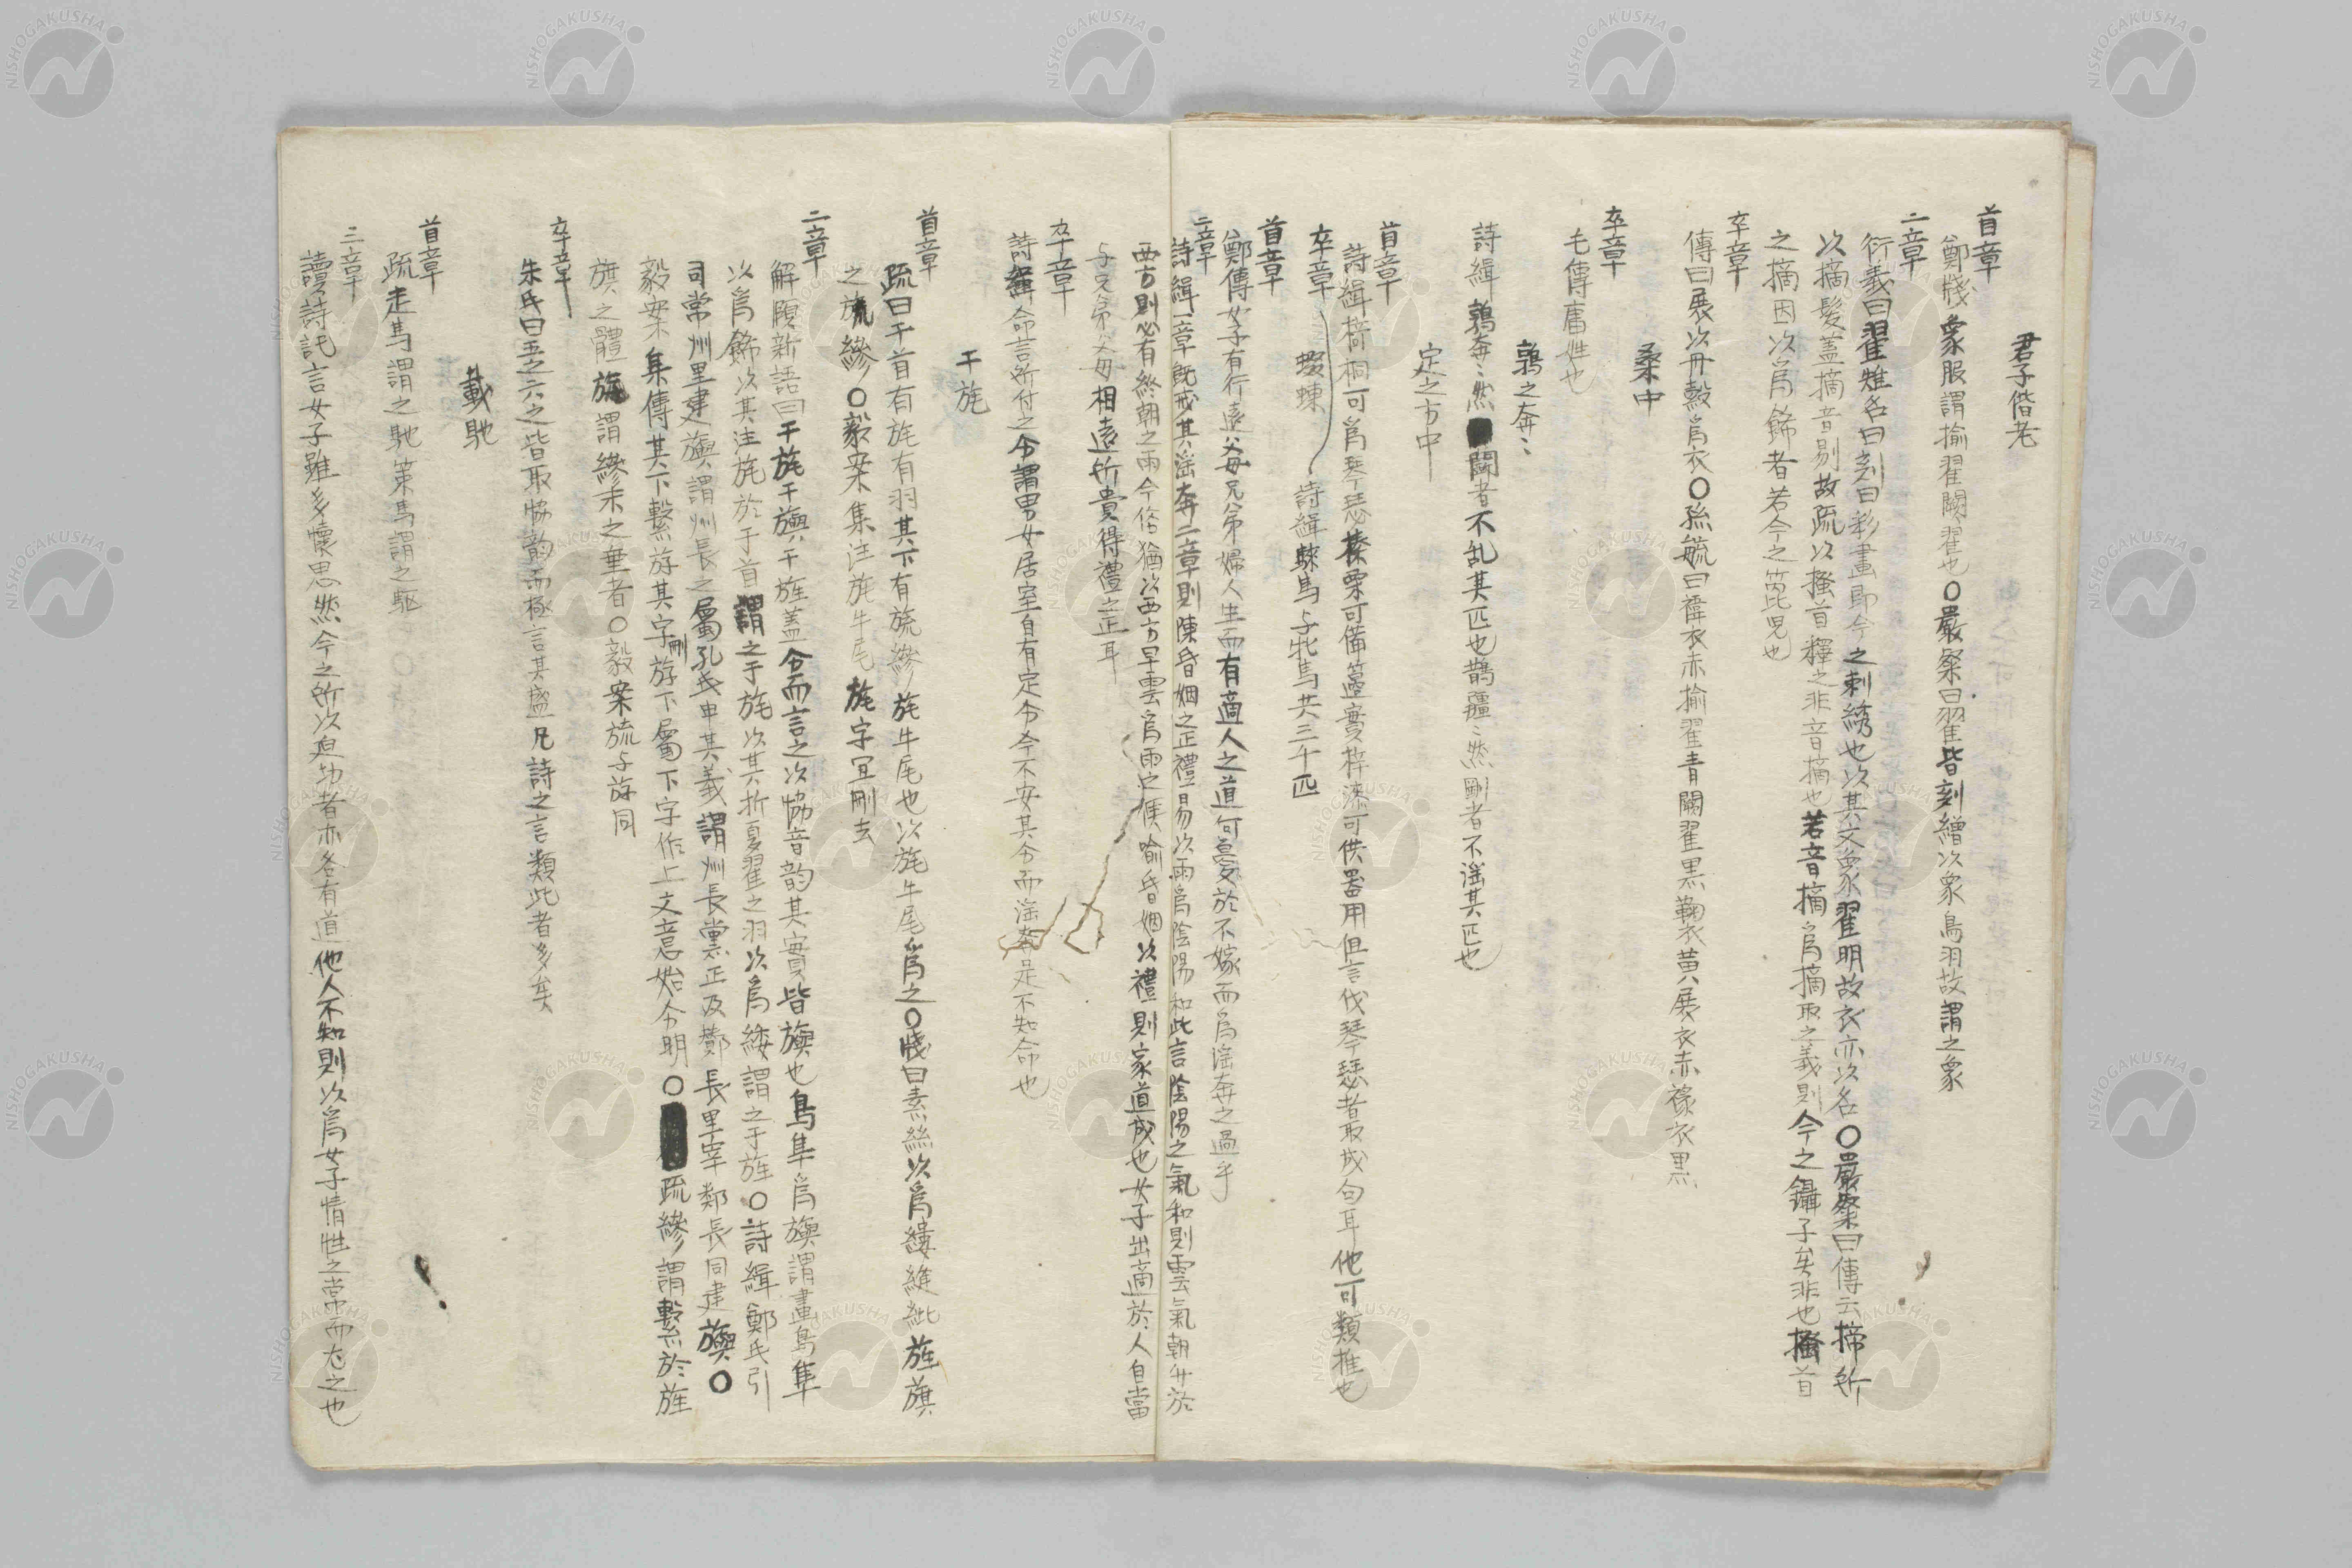 君子偕老
首章
鄭牋象服謂揄翟闕翟也〇嚴粲曰翟皆刻繒以象鳥羽故謂之象
二章
衍義曰翟雉名曰刻曰彩畫即今之刺綉也以其文象翟明故衣亦以名〇嚴粲曰傳云揥所
以摘髮蓋摘音剔故疏以搔首釋之非音摘也若音摘爲摘取之義則今之鑷子矣非也搔首
之摘因以爲飾者若今之篦児也
卒章
傳曰展以丹縠爲衣〇孫毓曰褘衣赤揄翟青闕翟黒鞠衣黄展衣赤褖衣黒
桑中
卒章
毛傳庸姓也
鶉之奔〻
詩緝鶉奔〻然闘者不乱其匹也鵲彊〻然剛者不淫其匹也
定之方中
首章
詩緝椅桐可爲琴瑟榛栗可備籩實梓漆可供器用但言伐琴瑟者取成句耳他可類推也
卒章　詩緝騋馬与牝馬共三千匹
蝃蝀
首章
鄭傳女子有行遠父毋兄弟婦人生而有適人之道何憂於不嫁而爲淫奔之過乎
二章
詩緝一章既戒其淫奔二章則陳昏姻之正禮易以雨爲陰陽和此言陰陽之氣和則雲氣朝升於
西方則必有終朝之雨今俗猶以西方早雲爲雨之候喻昏姻以禮則家道成也女子出適於人自當
与兄弟父毋相遠所貴得禮之正耳
卒章
詩緝命言所付之命謂男女居室自有定命今不安其命而淫奔是不知命也
干旄
首章
疏曰干首有旄有羽其下有旒縿旄牛尾也以旄牛尾爲之〇牋曰素絲以爲縷縫紕旌旗
之旒縿〇毅案集注旄牛尾旄字冝刪去
二章
解頤新語曰干旄干旟干旌蓋合而言之以協音韵其實皆旟也鳥隼爲旟謂畫鳥隼
以爲飾以其注旄於干首謂之干旄以其折夏翟之羽以爲緌謂之干旌〇詩緝鄭氏引
司常州里建旟謂州長之屬孔氏申其義謂州長黨正及酇長里宰鄰長同建旟〇
毅案集傳其下繋斿其字刪斿下屬下字作上文意始今明〇疏縿謂繋於旌
旗之體旒謂縿末之垂者〇毅案旒与斿同
卒章
朱氏曰五之六之皆取協韵而極言其盛凡詩之言類此者多矣
載馳
首章
疏走馬謂之馳策馬謂之駆
三章
讀詩記言女子雖多懷思然今之所以迫切者亦各有道他人不知則以爲女子情性之常而尤之也